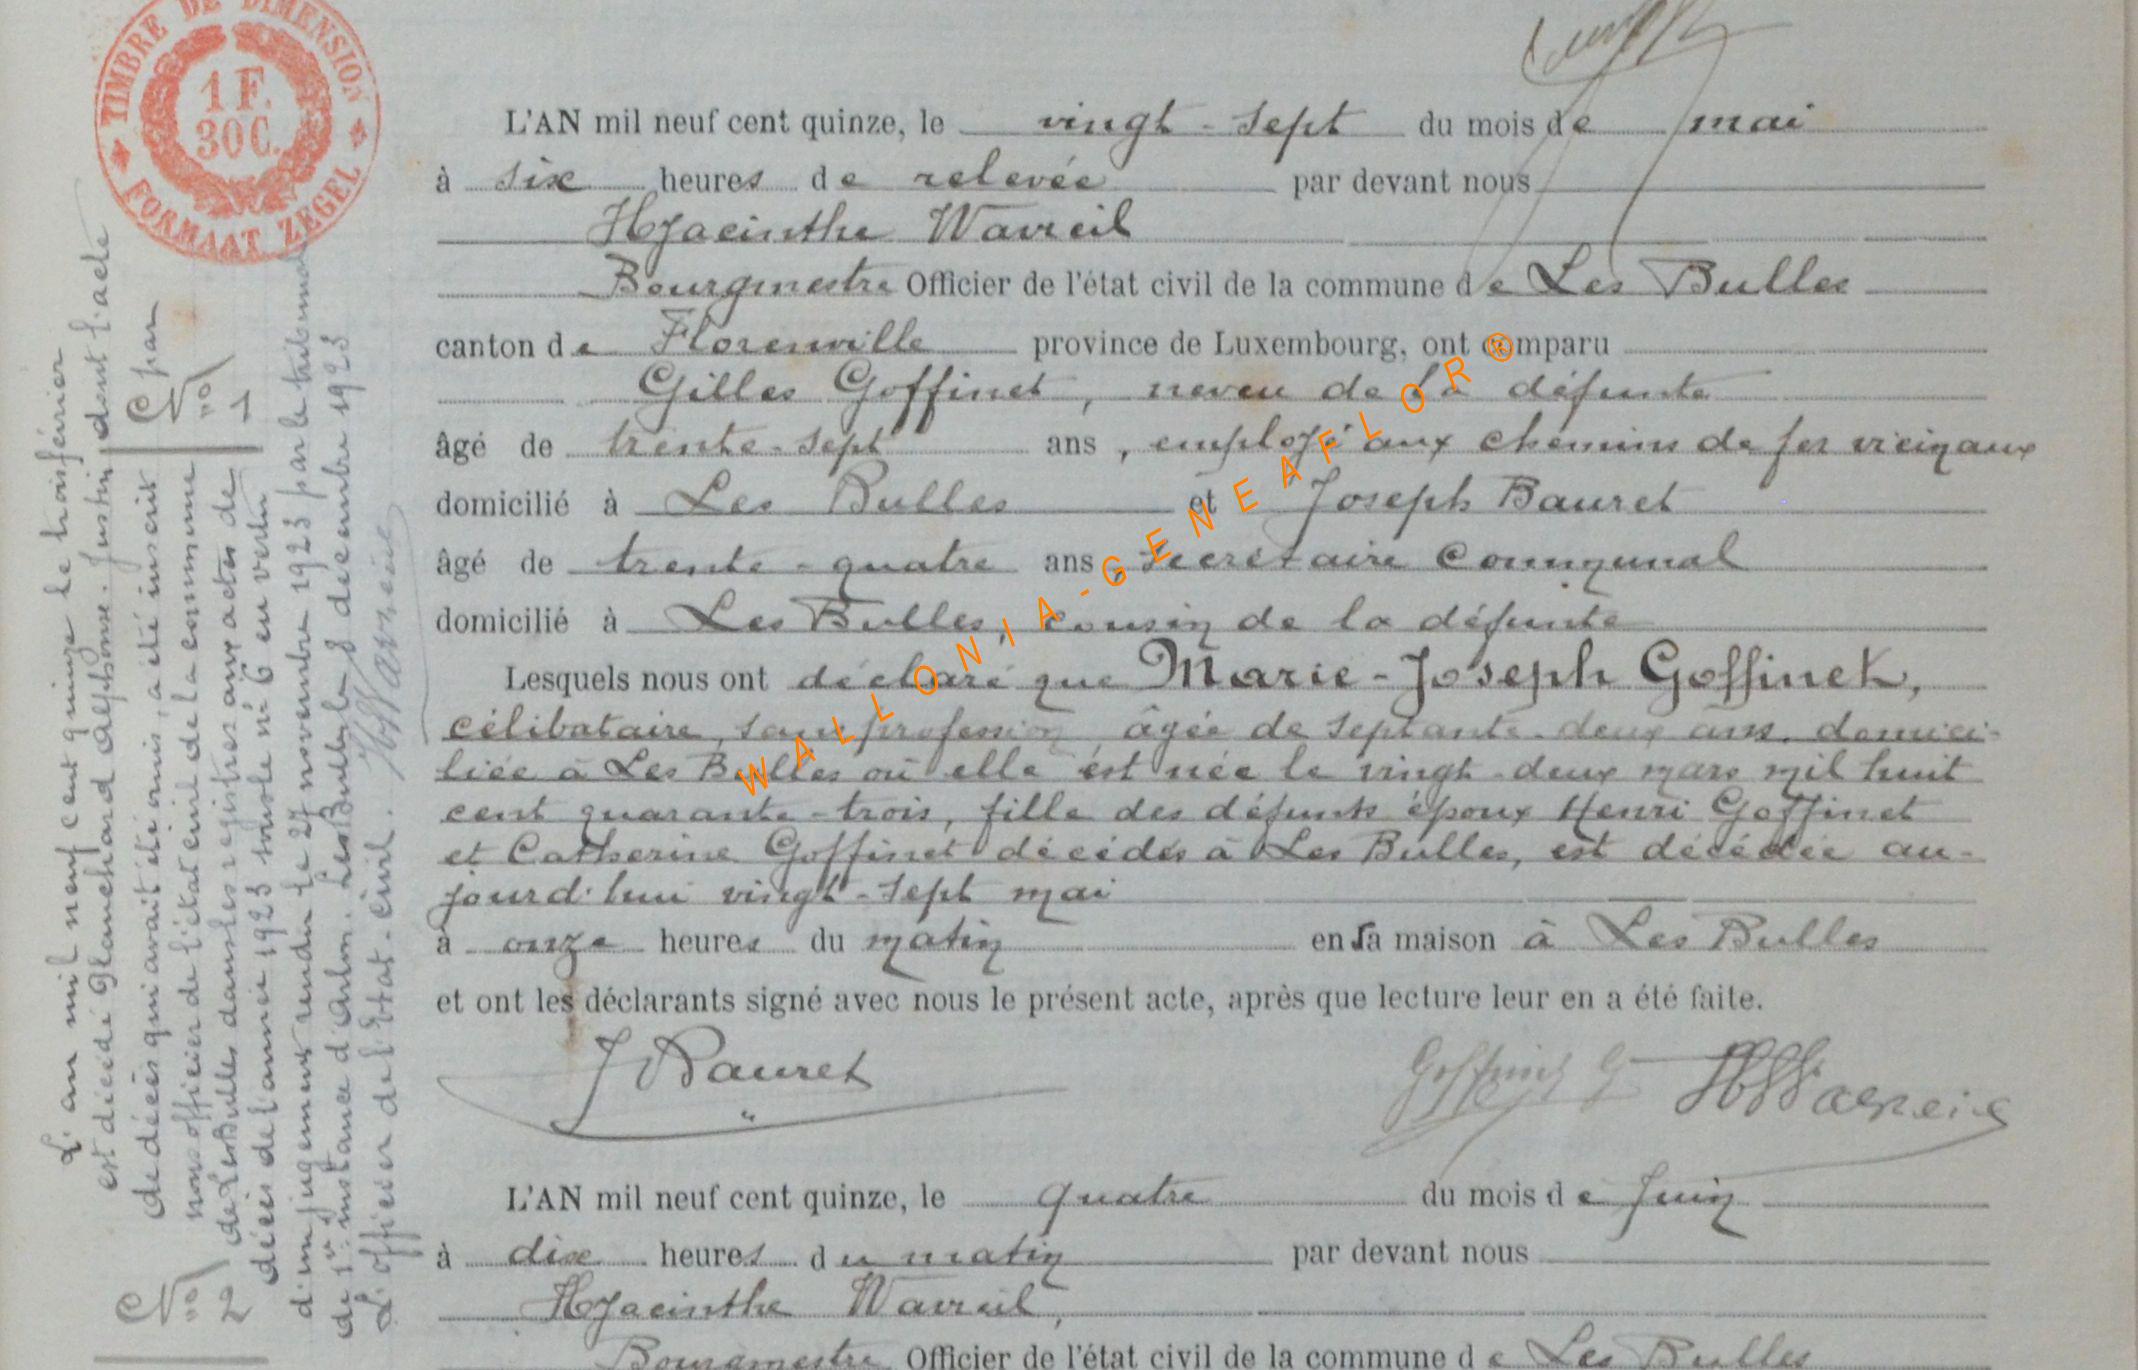 TIMBRE DE DIMENSION
1 F.
30 C.
FORMAAT ZEGEL
L'AN mil neuf cent quinze, le vingt-sept du mois de mai
à six heures de relevée par devant nous
Hyacinthe Wavreil
Bourgmestre Officier de l'état civil de la commune de Les Bulles
canton de Florenville province de Luxembourg, ont comparu
Gilles Goffinet, neveu de la défunte
âgé de trente-sept ans, employé aux chemins de fer vicinaux
domicilié à Les Bulles et Joseph Bauret
âgé de trente-quatre ans, secrétaire communal
domicilié à Les Bulles, cousin de la défunte
Lesquels nous ont déclaré que Marie-Joseph Goffinet,
célibataire, sans profession, âgée de septante-deux ans, domici-
liée à Les Bulles où elle est née le vingt-deux mars mil huit
cent quarante-trois, fille des défunts époux Henri Goffinet
et Catherine Goffinet décédés à Les Bulles, est décédée au-
jourd'hui vingt-sept mai
à onze heures du matin en sa maison à Les Bulles
et ont les déclarants signé avec nous le présent acte, après que lecture leur en a été faite.
J Bauret
Goffinet G
HWavreil
L'AN mil neuf cent quinze, le quatre du mois de Juin
à dix heures du matin par devant nous
Hyacinthe Wavreil,
Bourgmestre Officier de l'état civil de la commune de Les Bulles
N° 1
N° 2
L'an mil neuf cent quinze le trois février
est décédé Blanchard Alphonse Justin dont l'acte
de décès qui avait été omis, a été inscrit par
nous officier de l'état civil de la commune
de Les Bulles dans les registres aux actes de
décès de l'année 1923 sous le n° 6 en vertu
d'un jugement rendu le 27 novembre 1923 par le tribunal
de 1re instance d'Arlon. Les Bulles le 8 décembre 1923
L'officier de l'Etat-Civil.
HWavreil
WALLONIA-GENEAFLOR®